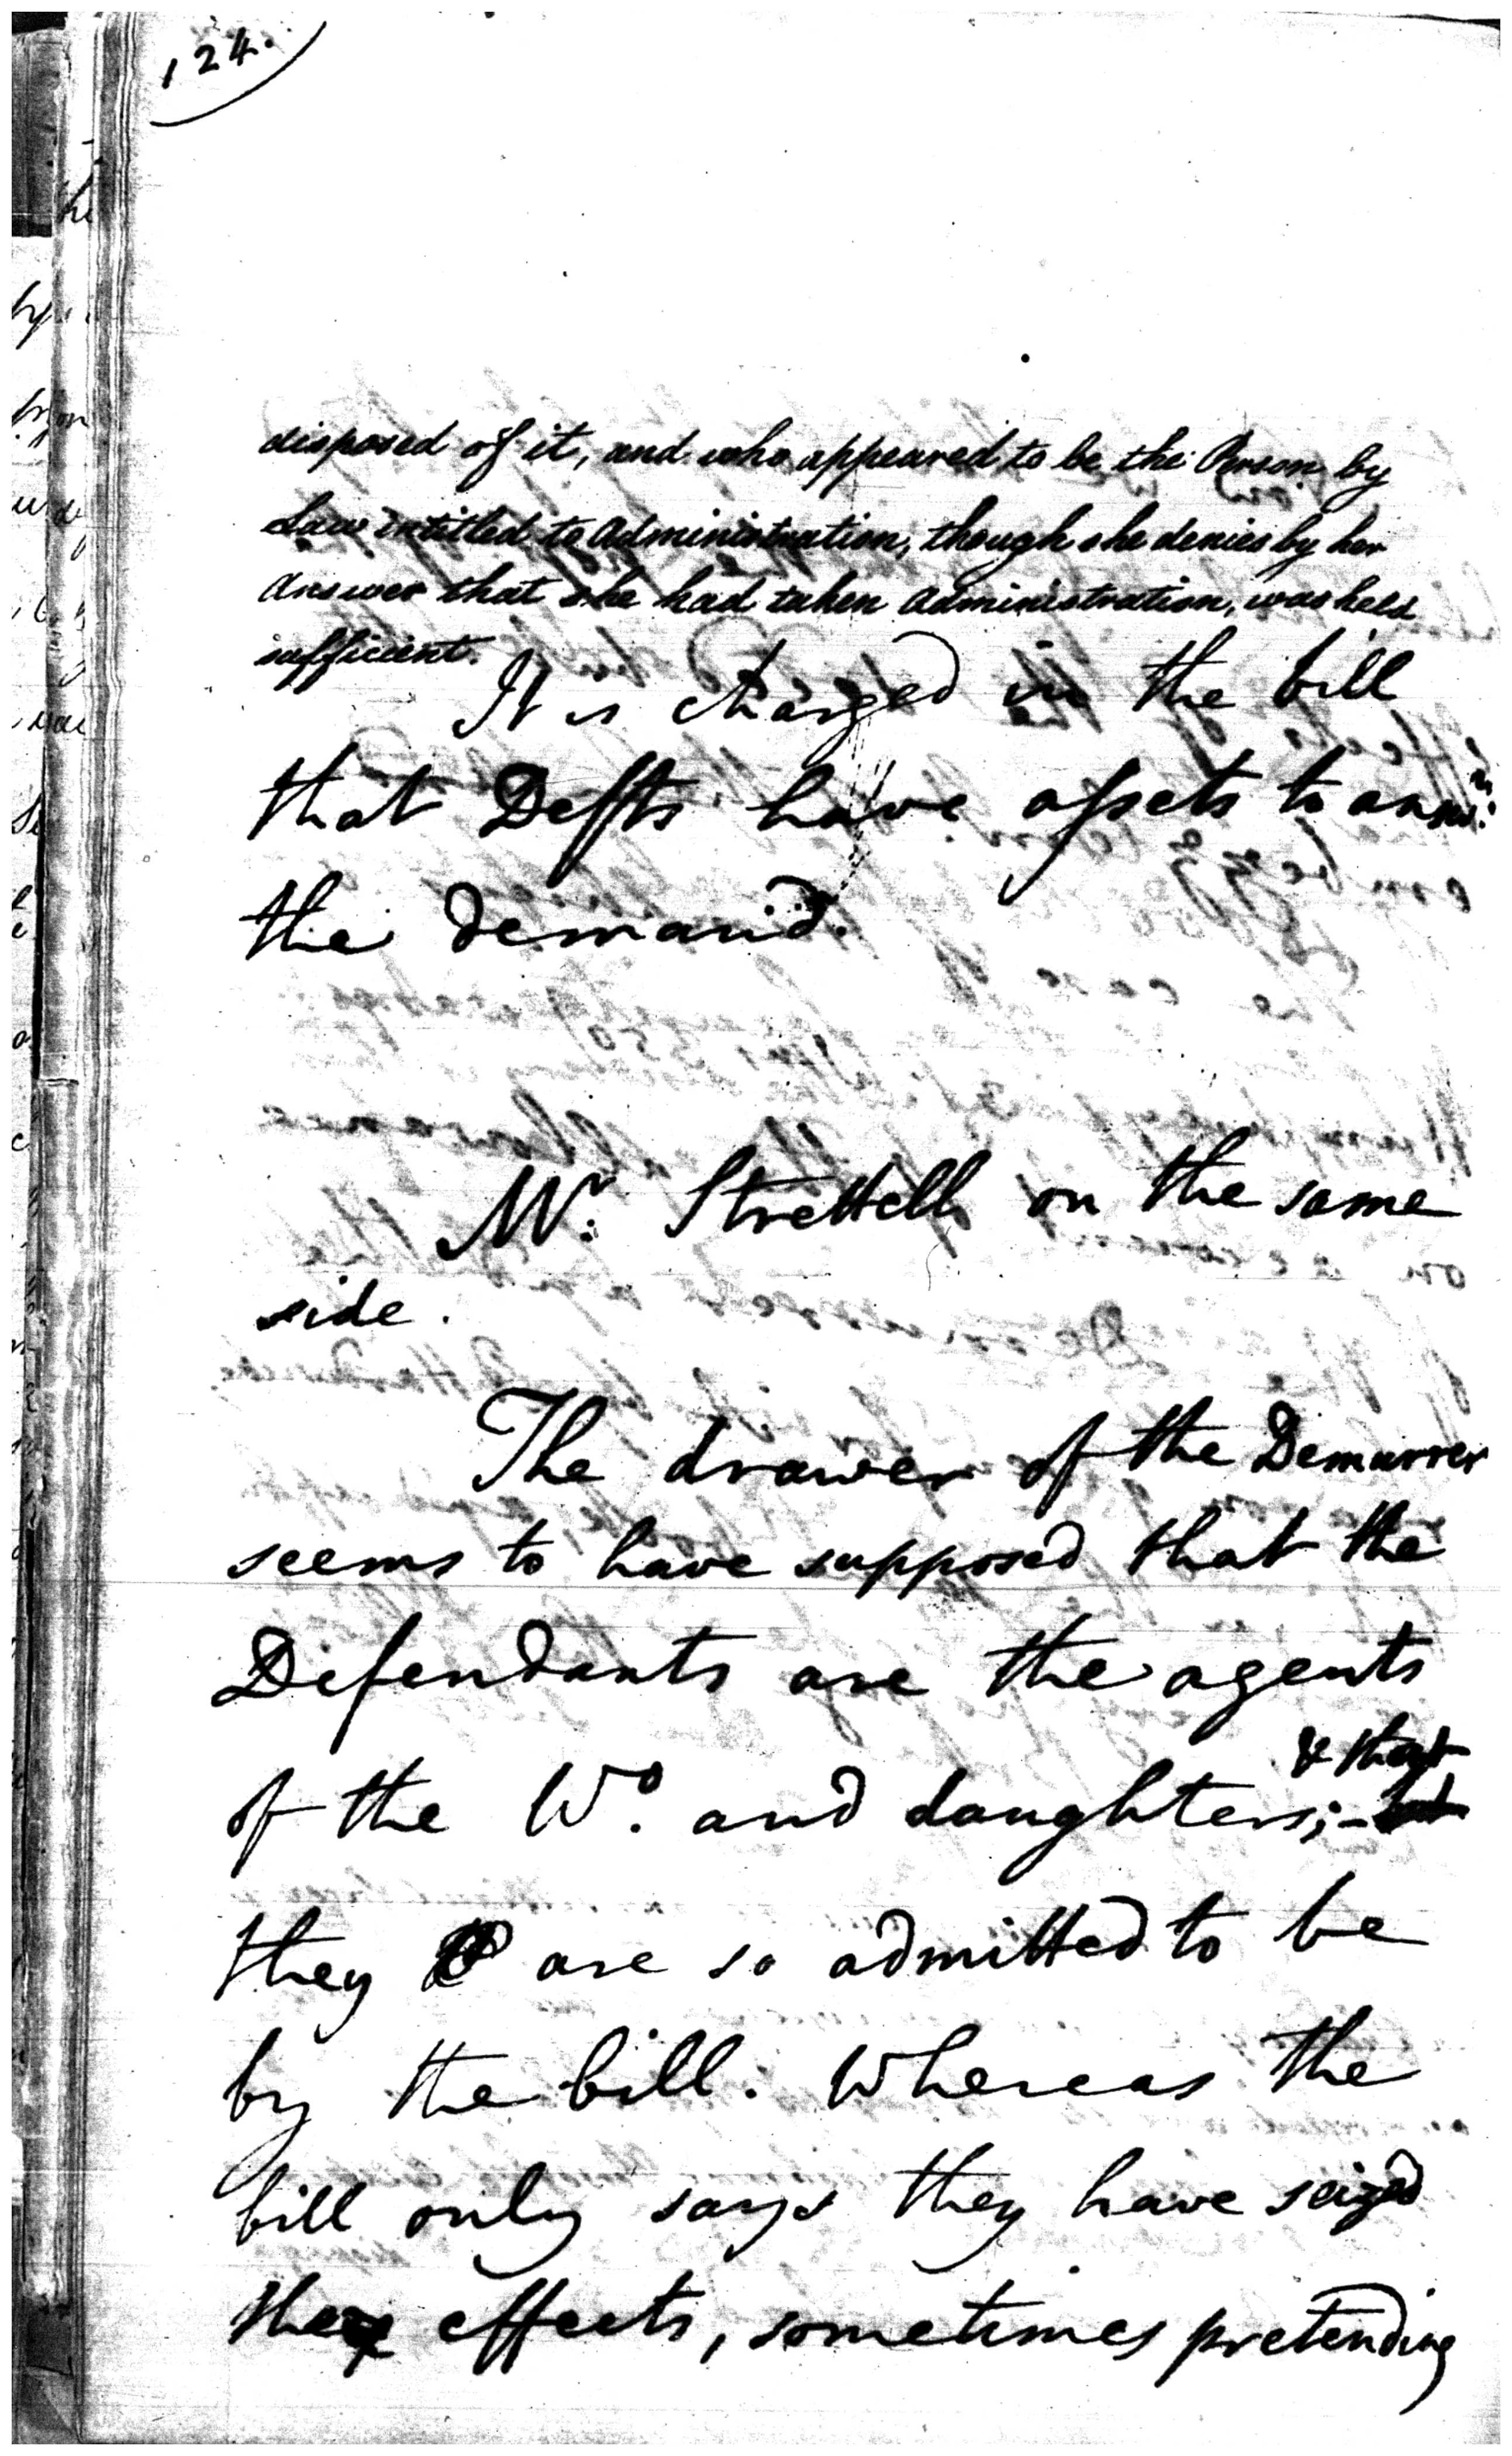 124.
disposed of it, and who appeared to be the Person by
Law intitled to Administration, though she denies by her
Answer that she had taken Administration, was held
sufficient.
It is charged in the bill
that Defts have assets to answr.
the demand.
Mr. Strettell on the same
side.
The drawer of the Demurrer
seems to have supposed that the
Defendants are the agents
& that
of the Wo. and daughters; -
they are so admitted to be
by the bill. Whereas the
bill only says they have seized
the effects, sometimes pretending